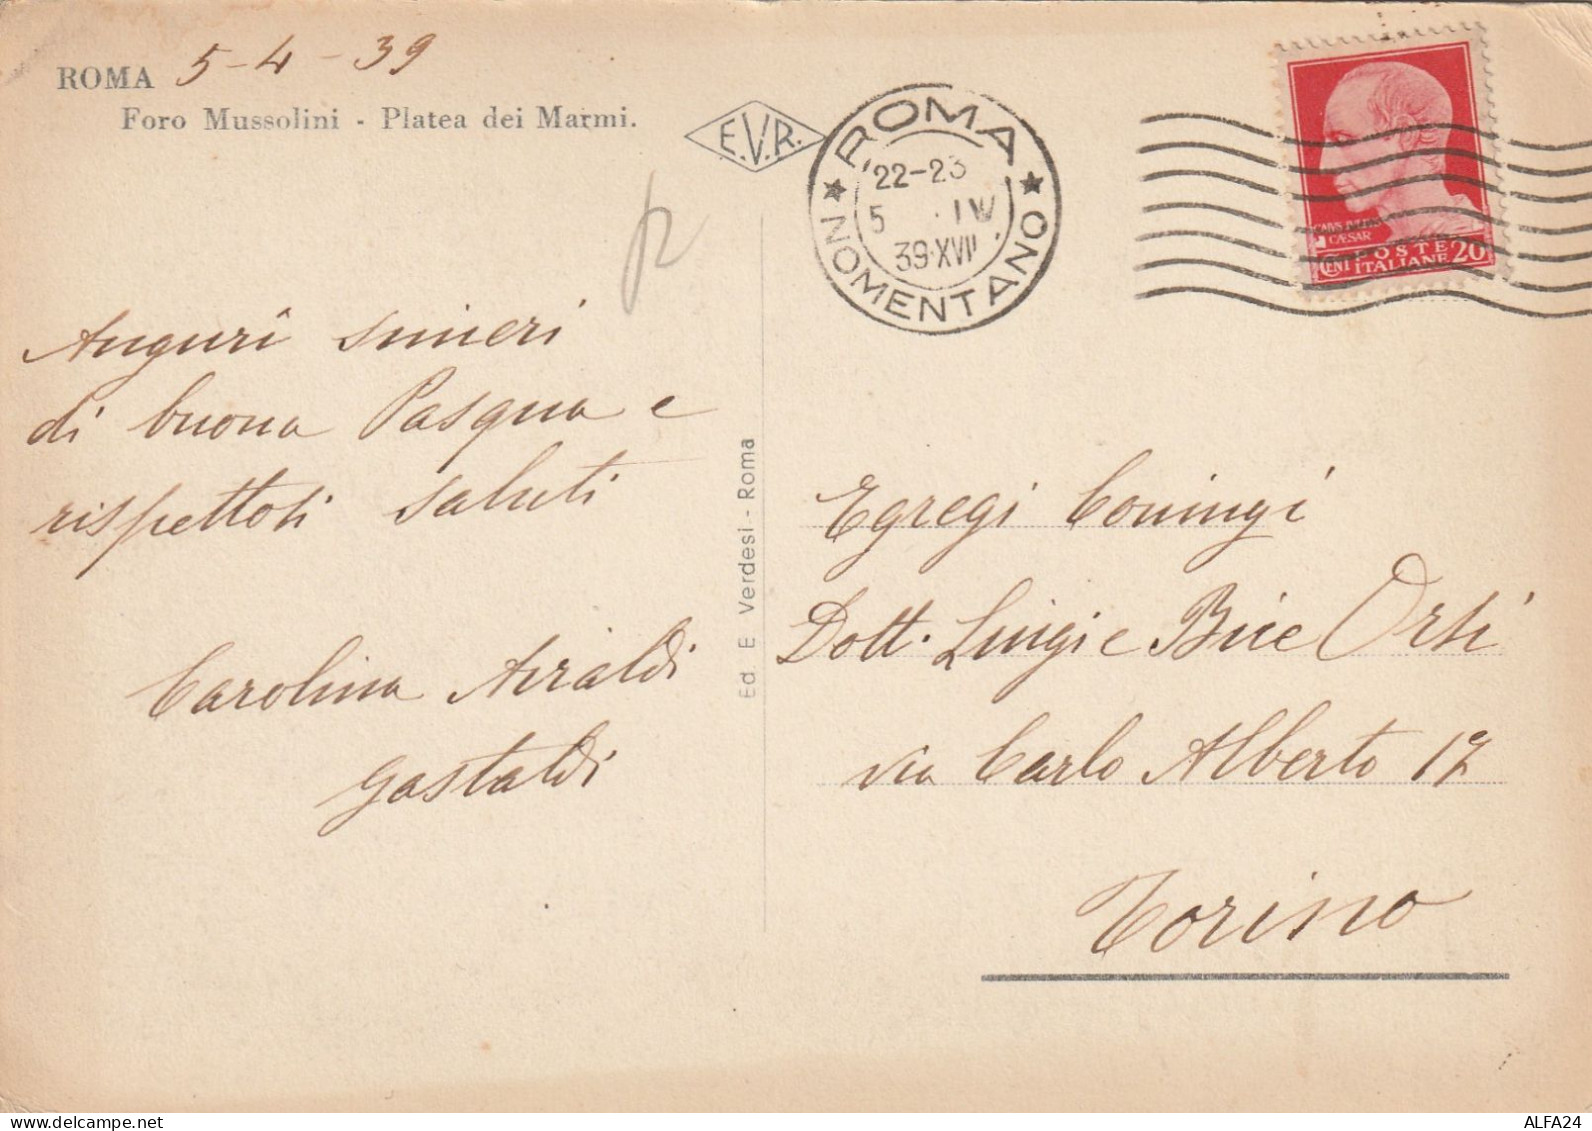 ROMA 5-4-39
Foro Mussolini - Platea dei Marmi.
E.V.R.
ROMA
22-23
5 IV
39·XVII
NOMENTANO
CAESAR
POSTE
CENT ITALIANE 20
Auguri sinceri
di buona Pasqua e
rispettosi saluti
Carolina Airaldi
Gastaldi
Ed. E. Verdesi - Roma
Egregi Coniugi
Dott. Luigi e Bice Orsi
via Carlo Alberto 17
Torino
ALFA24